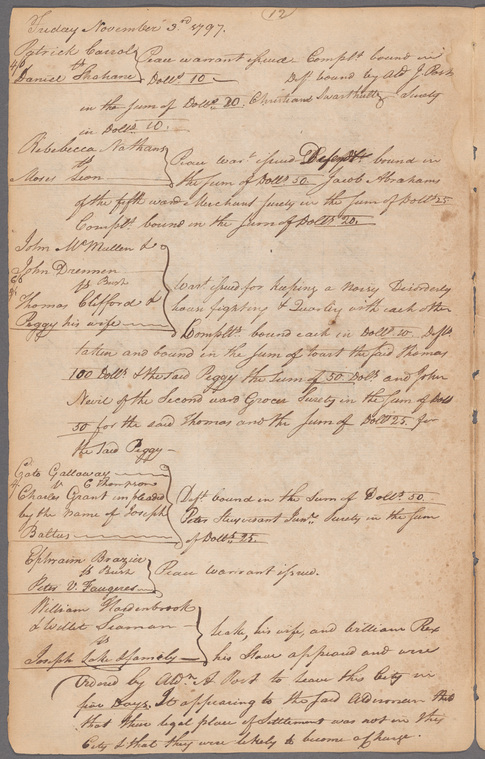 12
Friday November 3rd 1797.
Patrick Carrol
vs
Daniel Shahane
Peace warrant issued Complt bound in
Dolls 10 — Deft bound by Ald J. Post
in the sum of Dolls 20. Christian Swarthultz Surety
in Dolls 10.
Rebebecca Nathans
vs
Moses Leon
Peace Wart issued Deft bound in
the sum of Dolls 50 Jacob Abrahams
of the fifth ward Merchant Surety in the sum of Dolls 25
Complt bound in the sum of Dolls 20.
John McMullen &
John Drennon
vs Bush
Thomas Clifford &
Peggy his wife
Wart issued for keeping a noisy Disorderly
house fighting & Quarling with each other
Complts bound each in Dolls 10. Defts
taken and bound in the sum of to wit the said Thomas
100 Dolls & the said Peggy the sum of 50 Dolls and John
Nevil of the Second ward Grocer Surety in the sum of Dolls
50 for the said Thomas and the sum of Dolls 25 for
the said Peggy —
Cato Gallaway
v. C Thompson
Charles Grant impleaded
by the name of Joseph
Baltus
Deft bound in the Sum of Dolls 50
Peter Stuyvesant Junr Surety in the sum
of Dolls 25.
Ephraim Brazier
vs Bush
Peter V. Faugeres
Peace warrant issued.
William Hardenbrook
& Willet Seaman
vs
Joseph Lake & family
Leake, his wife, and William Rex
his Slave appeared and were
Ordered by Aldn A Post to leave the City in
five Days. It appearing to the said Alderman that
that their legal place of Settlement was not in this
City & that they were likely to become a charge.